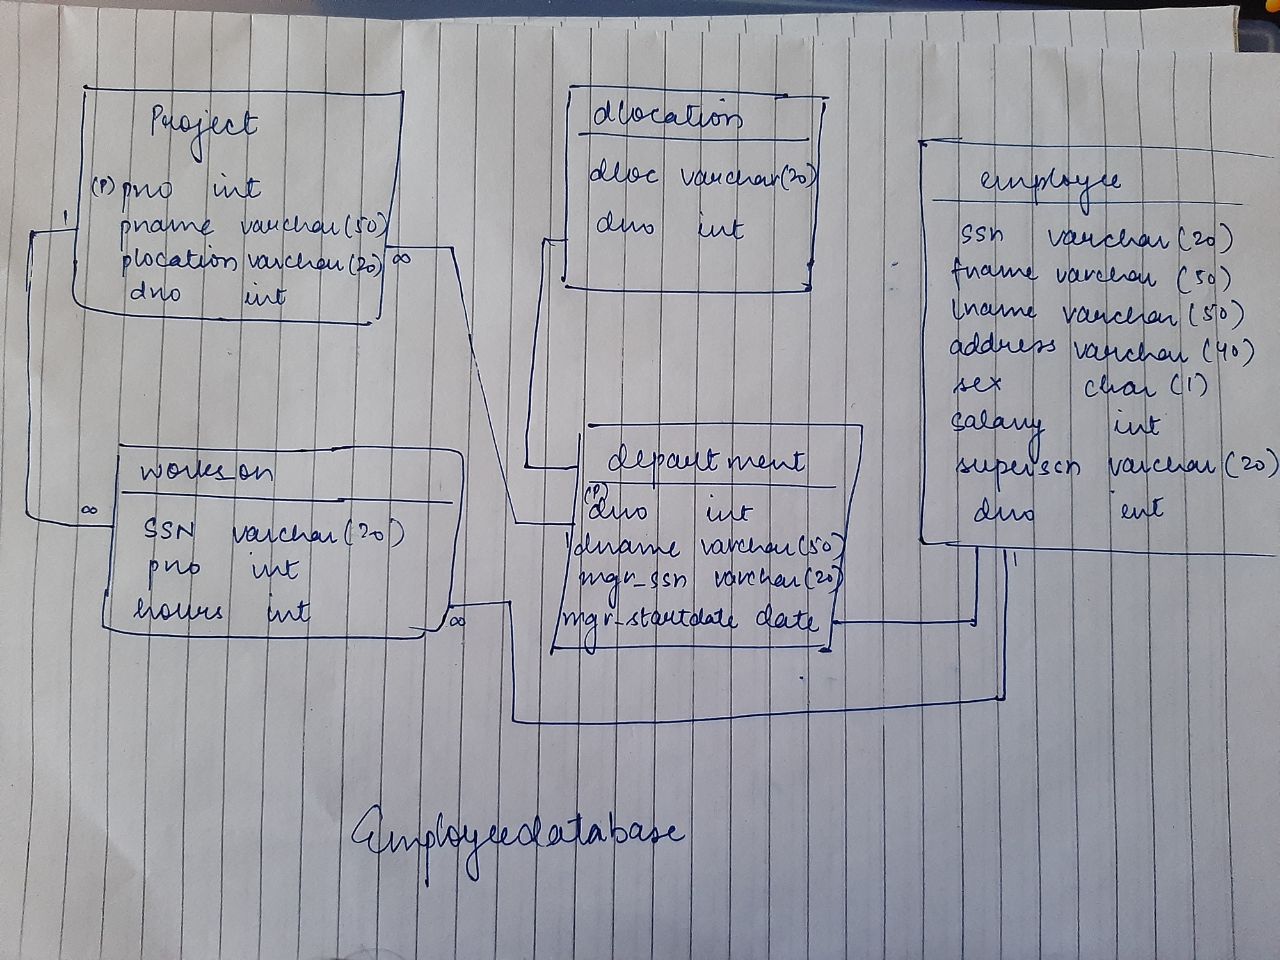 Project
(P) pno int
pname varchar(50)
plocation varchar(20)
dno int
1
∞
dlocation
dloc varchar(20)
dno int
employee
ssn varchar(20)
fname varchar (50)
lname varchar (50)
address varchar (40)
sex char (1)
salary int
superssn varchar (20)
dno int
1
workson
∞
SSN varchar(20)
pno int
hours int
∞
department
(P) dno int
1
dname varchar(50)
mgr_ssn varchar(20)
mgr_startdate date
Employeedatabase